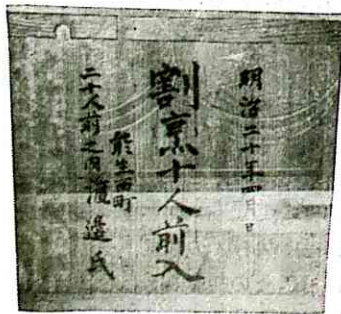 明治二十年四月日
割烹十人前入
於生西町
二十人前之内渡邉氏